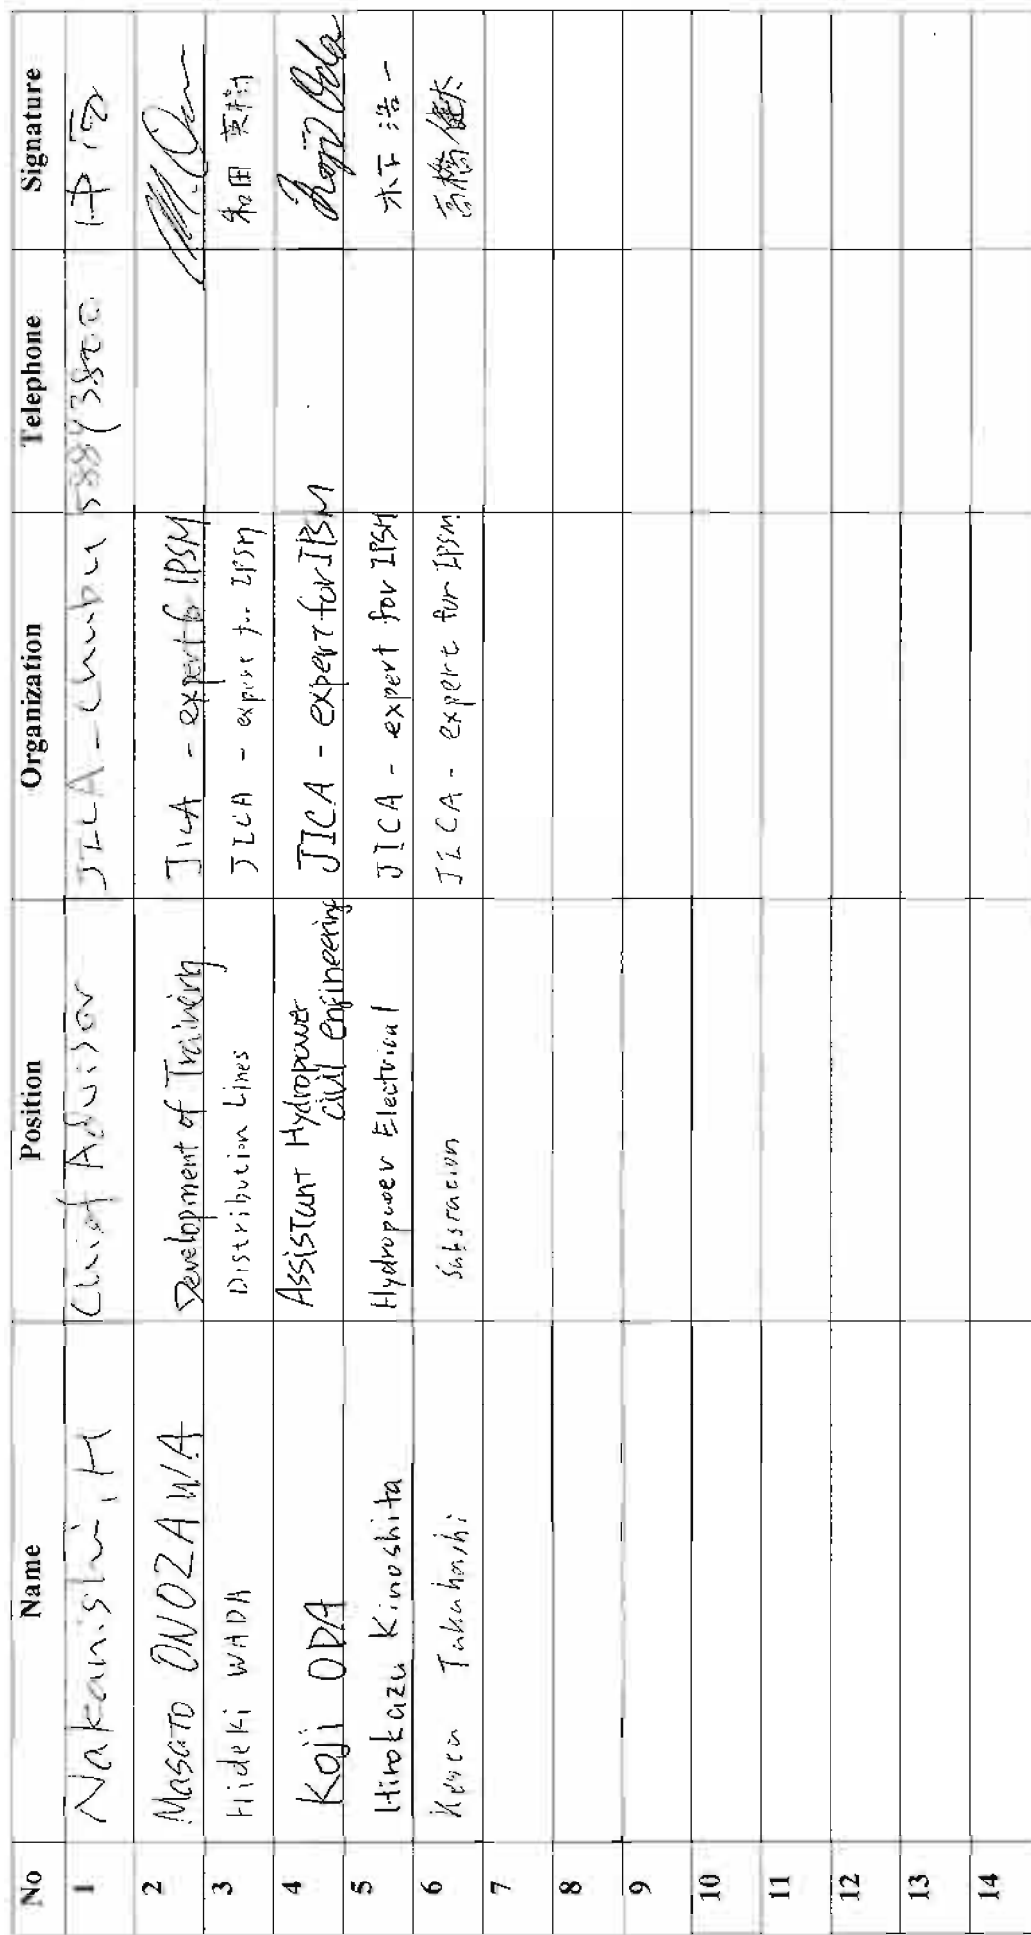 No Name Position Organization Telephone Signature
1 Nakanishi, H Chief Advisor JICA - Chubu 中西
2 Masato ONOZAWA Development of Training JICA - expert for IPSM
3 Hideki WADA Distribution Lines JICA - expert for IPSM 和田 英樹
4 Koji ODA Assistant Hydropower JICA - expert for IPSM Koji Oda
civil engineering
5 Hirokazu Kinoshita Hydropower Electrical JICA - expert for IPSM 木下 浩一
6 Takahashi Substation JICA - expert for IPSM 高橋 健太
7
8
9
10
11
12
13
14